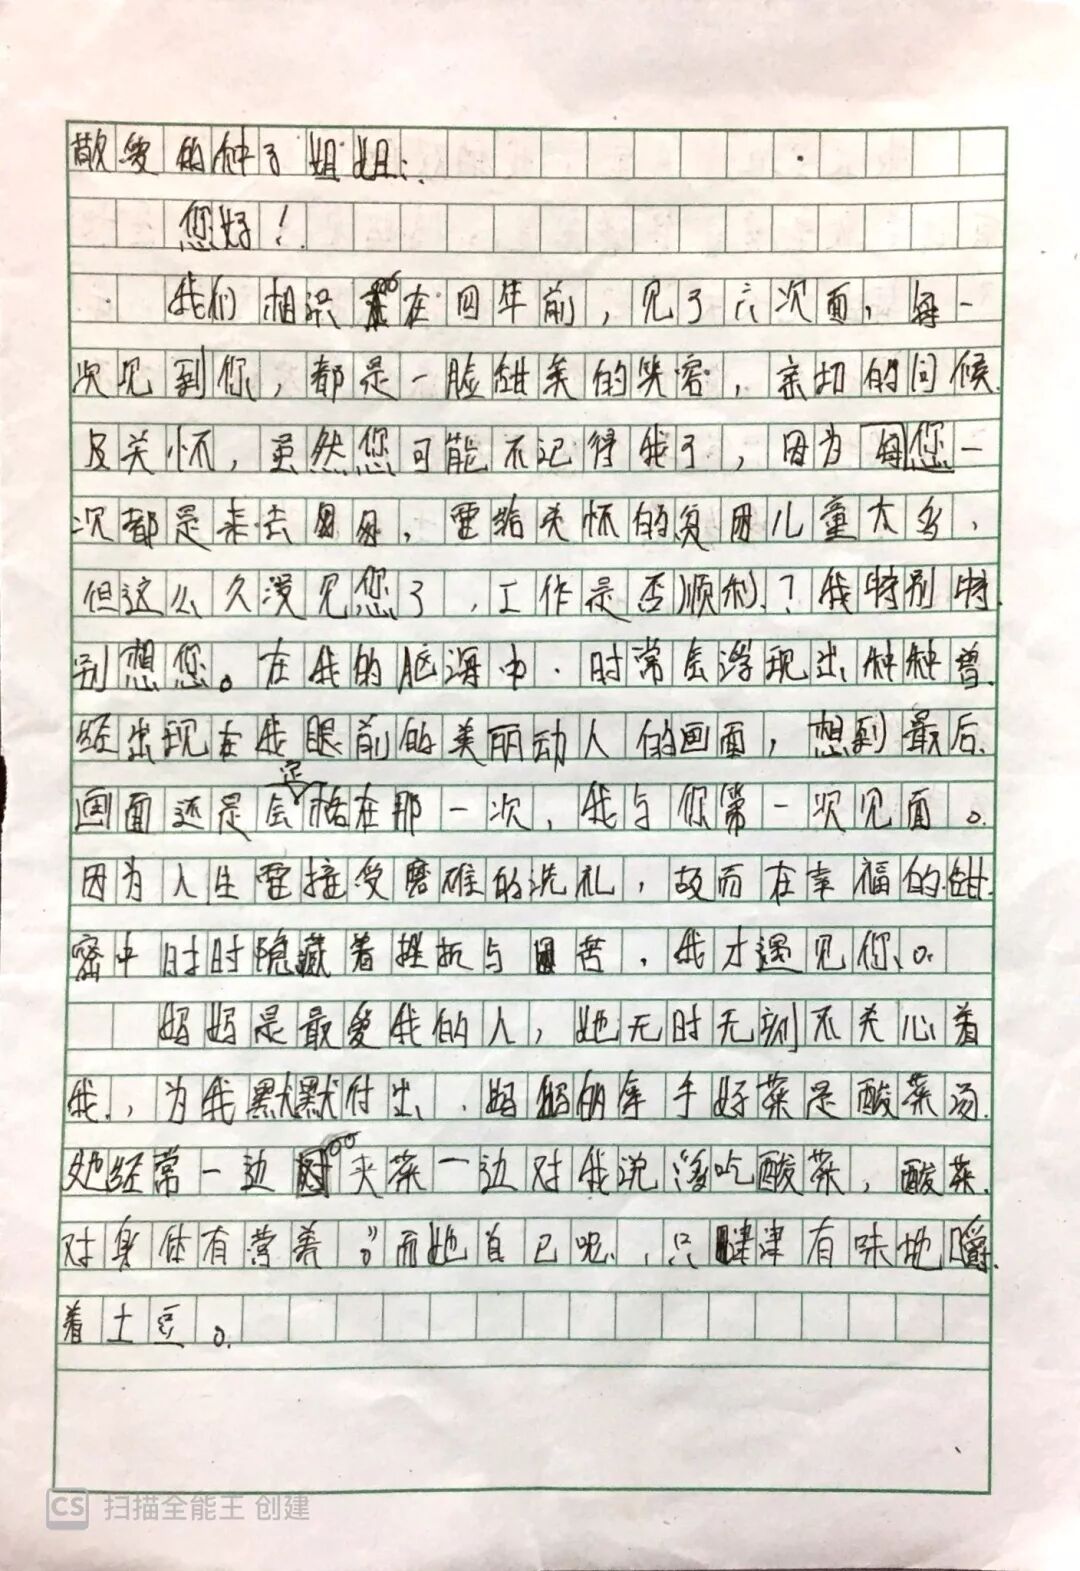 敬爱的钟子姐姐:
您好!
我们相识在四年前,见了六次面,每一
次见到你,都是一脸甜美的笑容,亲切的问候
及关怀,虽然您可能不记得我了,因为每您一
次都是来去匆匆,要给关怀的贫困儿童太多,
但这么久没见您了,工作是否顺利?我特别特
别想您。在我的脑海中.时常会浮现出种种曾
经出现在我眼前的美丽动人的画面,想到最后
画面还是会定格在那一次,我与你第一次见面。
因为人生要接受磨难的洗礼,故而在幸福的甜
蜜中时时隐藏着挫折与困苦,我才遇见你。
妈妈是最爱我的人,她无时无刻不关心着
我,为我默默付出,妈妈的拿手好菜是酸菜汤
她经常一边夹菜一边对我说多吃酸菜,酸菜
对身体有营养。”而她自己呢,只津津有味地嚼
着土豆。
CS 扫描全能王 创建